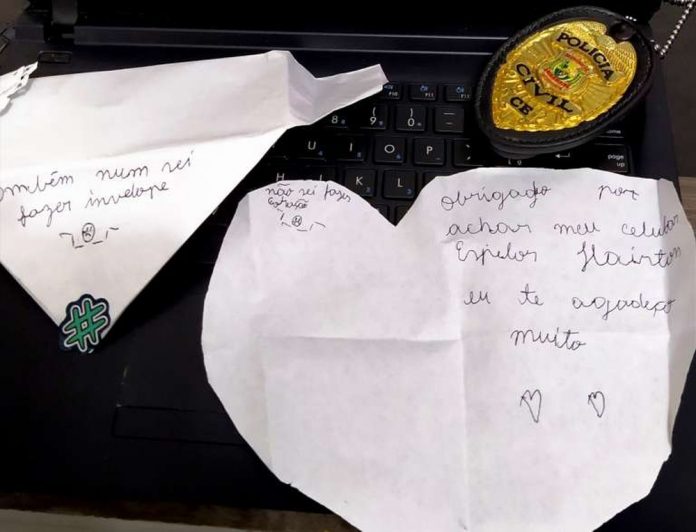 ombém num sei
fazer invelope
¯\_(ツ)_/¯
#
não sei fazer
coração
¯\_(ツ)_/¯
obrigado por
achar meu celular
Espelor Hairton
eu te agadeço
muito
POLÍCIA
CIVIL
CE
U I O P
H K L
page
up